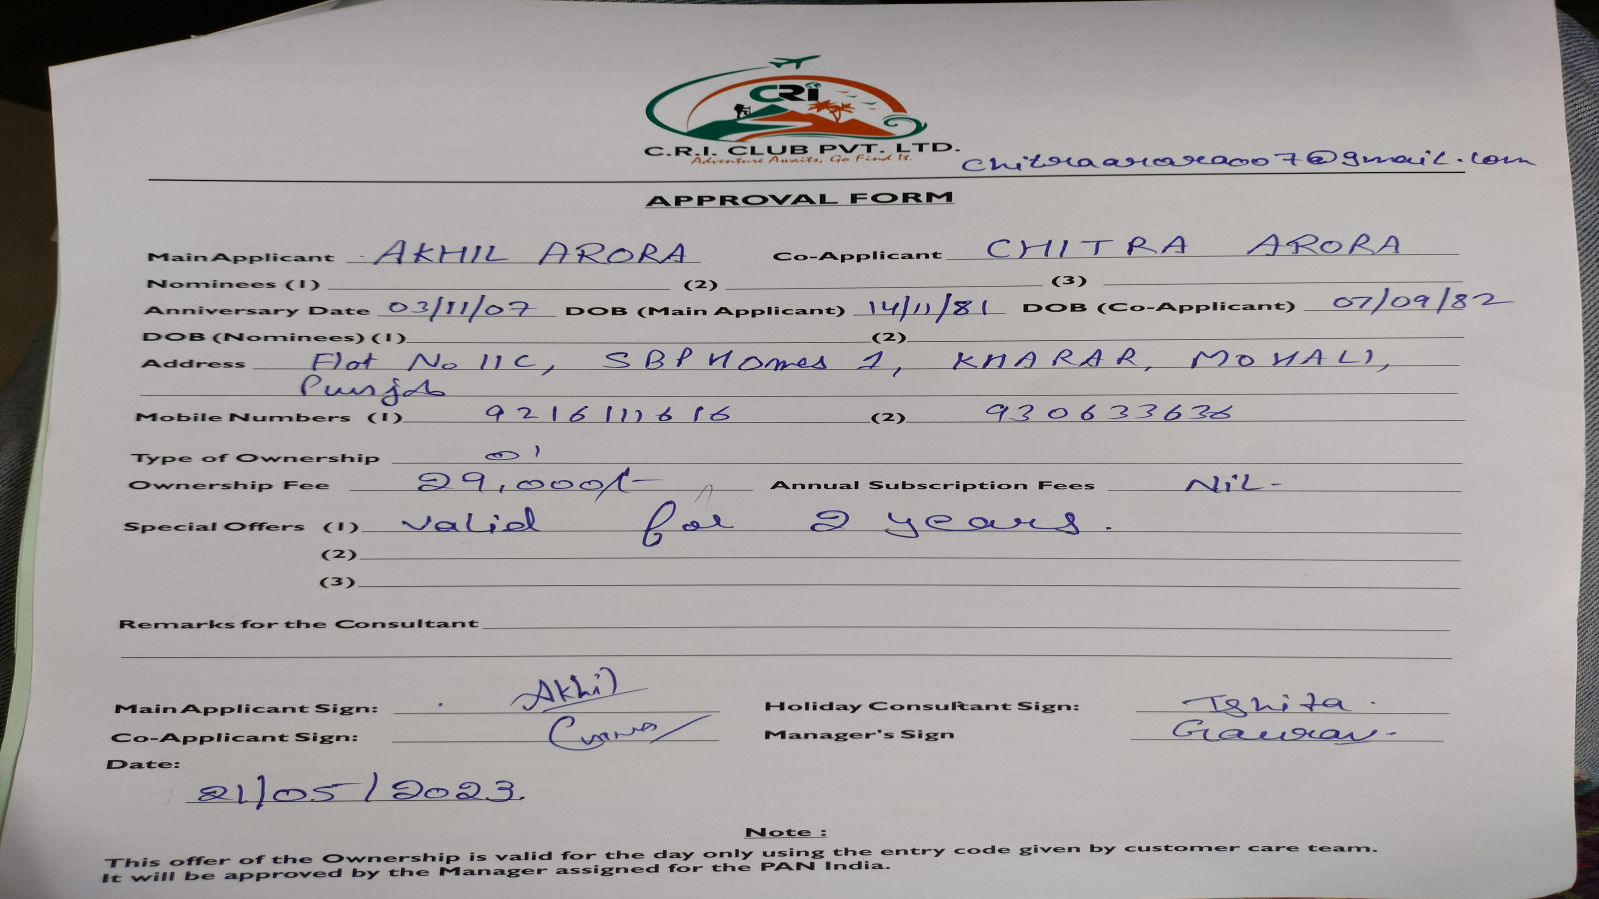 CRi
C.R.I. CLUB PVT. LTD.
Adventure Awaits, Go Find It.
chitraarora007@gmail.com
APPROVAL FORM
Main Applicant AKHIL ARORA Co-Applicant CHITRA ARORA
Nominees (1) (2) (3)
Anniversary Date 03/11/07 DOB (Main Applicant) 14/11/81 DOB (Co-Applicant) 07/09/82
DOB (Nominees) (1) (2)
Address Flat No 11C, SBP Homes 1, KHARAR, MOHALI,
Punjab
Mobile Numbers (1) 9216111616 (2) 930633636
Type of Ownership 01
Ownership Fee 29,000/- Annual Subscription Fees NiL-
Special Offers (1) valid for 2 years.
(2)
(3)
Remarks for the Consultant
Main Applicant Sign: Akhil Holiday Consultant Sign: Ishita.
Co-Applicant Sign: Manager's Sign Gaurav.
Date:
21/05/2023
Note :
This offer of the Ownership is valid for the day only using the entry code given by customer care team.
It will be approved by the Manager assigned for the PAN India.